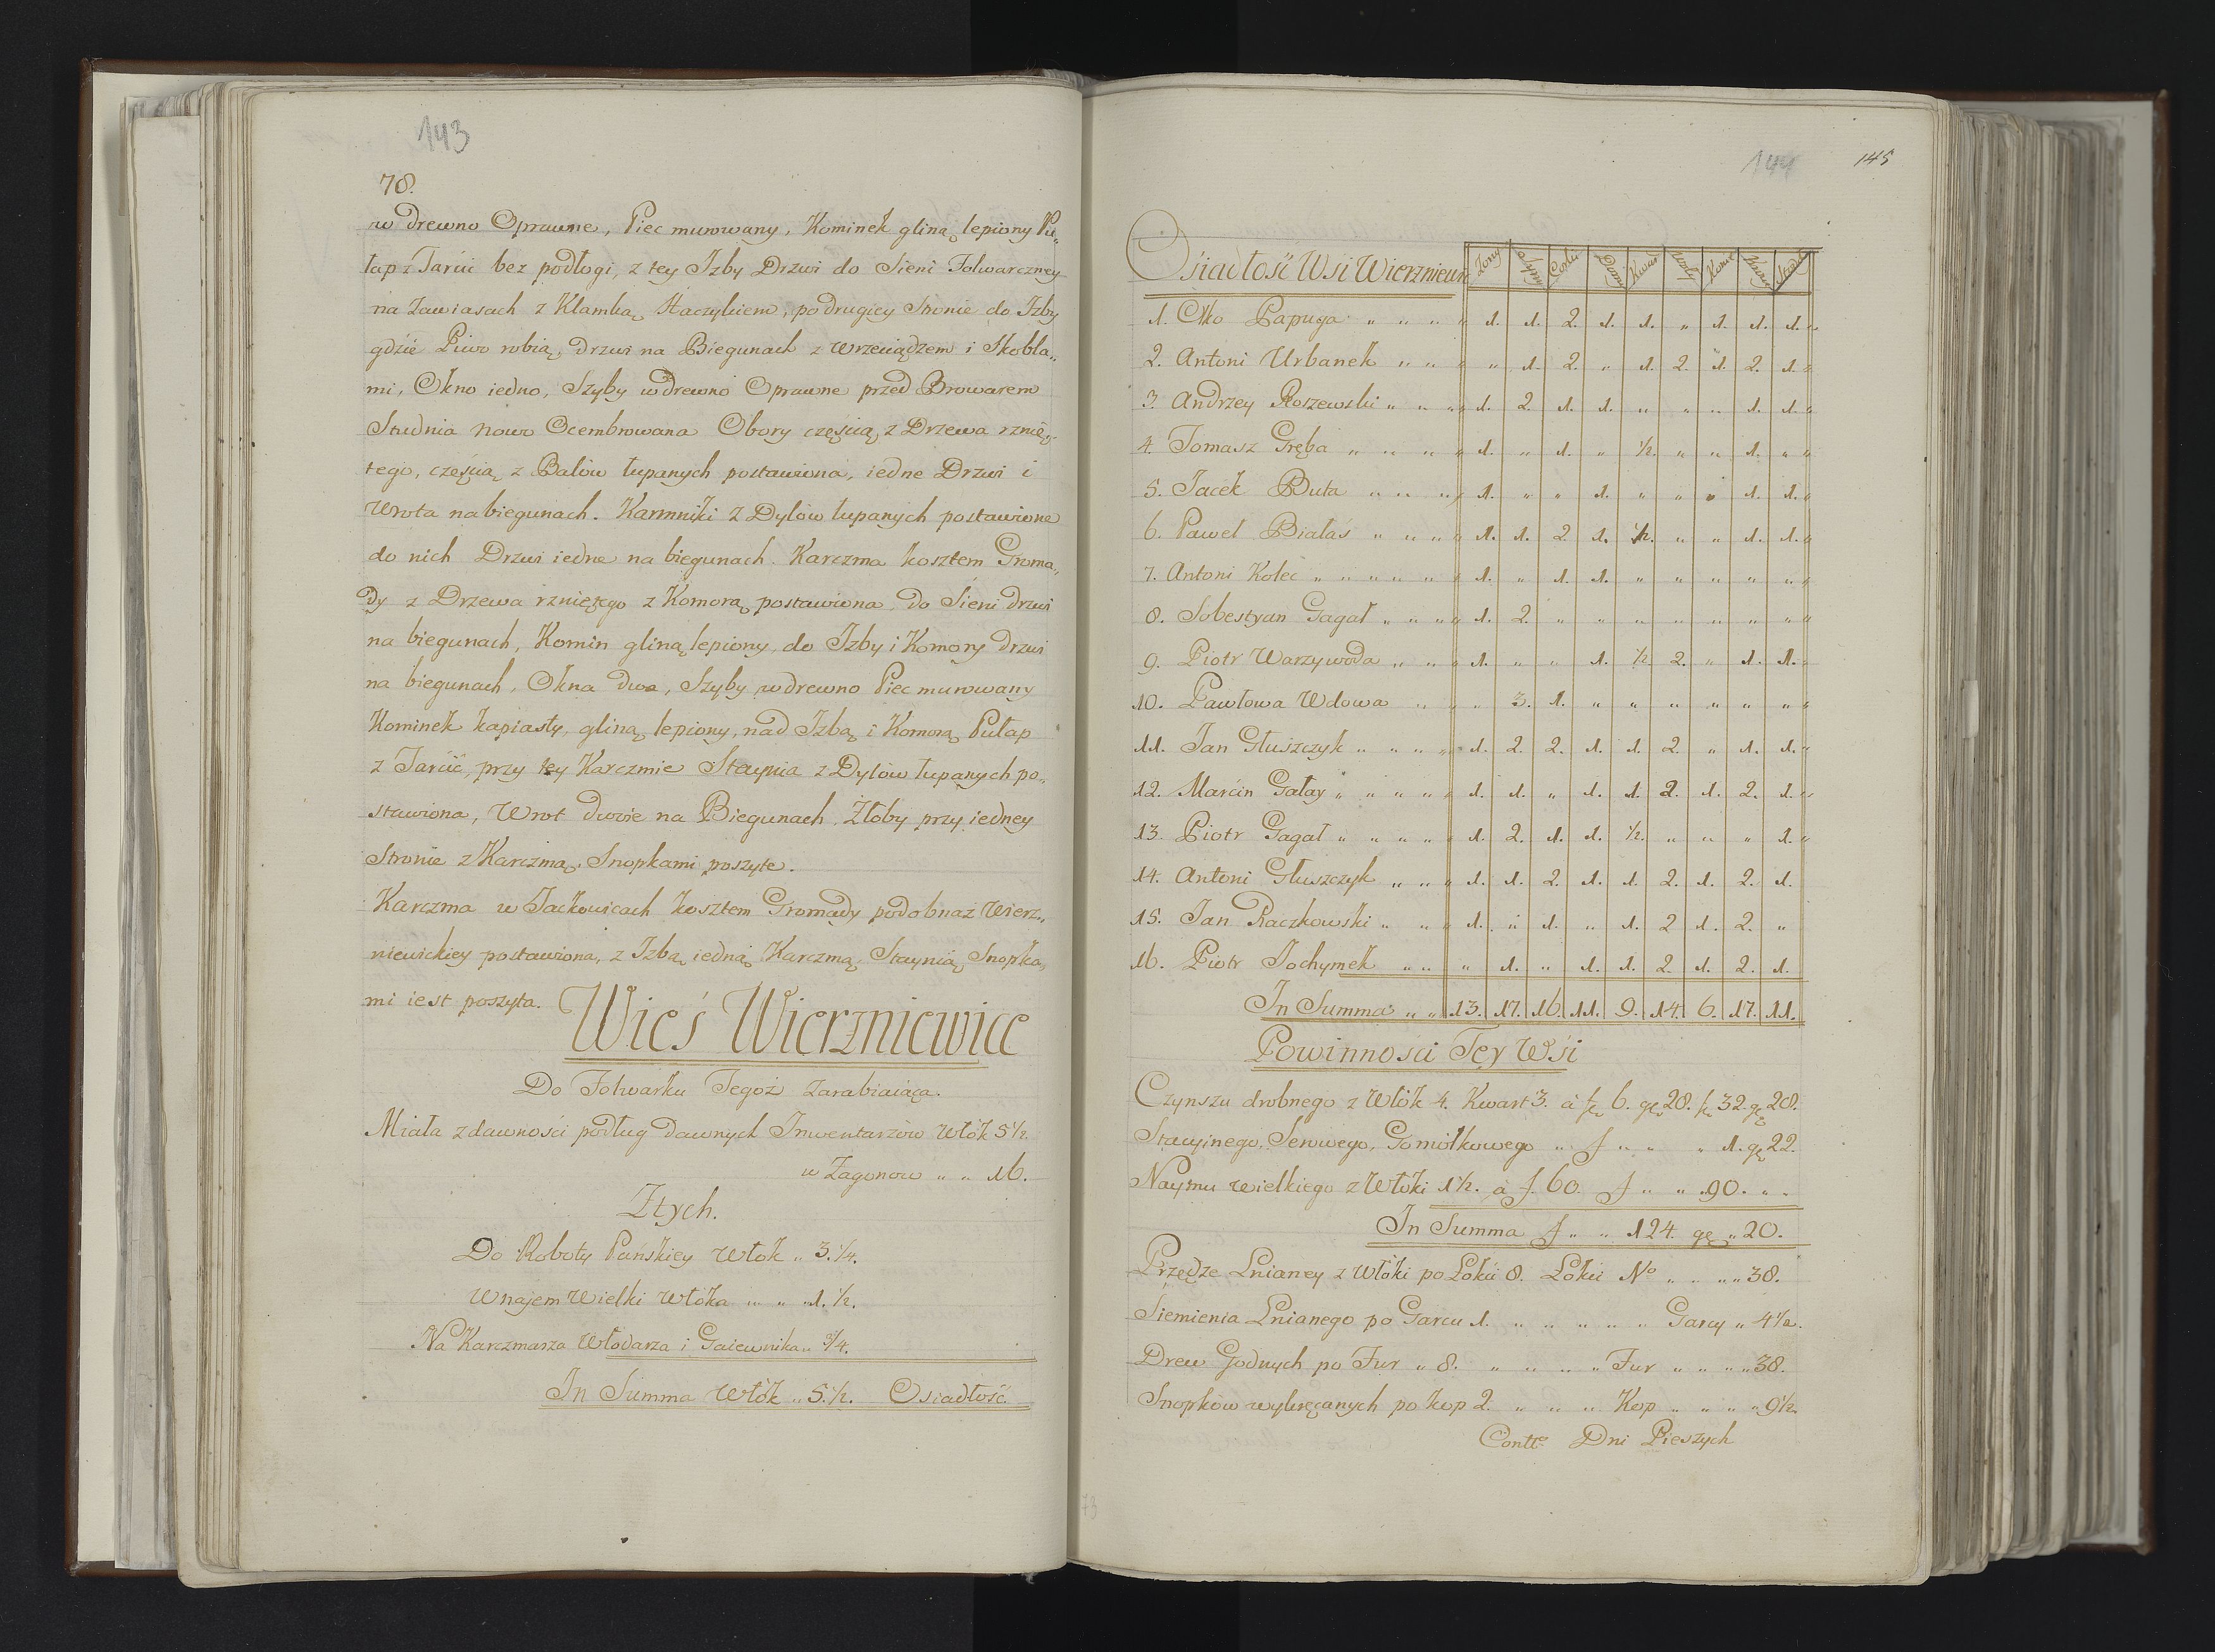 143
78.
w drewno Oprawne, Piec murowany, Kominek gliną lepiony Pu„
łap z Tarcic bez podłogi, z tey Izby Drzwi do Sieni Folwarczney
na Zawiasach z Klamką Haczykiem, po drugiey Stronie do Izby
gdzie Piwo robią, drzwi na Biegunach z Wrzeciądzem i Skobla„
mi, Okno iedno, Szyby w drewno Oprawne przed Browarem
Studnia nowo Ocembrowana Obory częścią z Drzewa rznię„
tego, częścią z Balów łupanych postawiona, iedne Drzwi i
Wrota na biegunach. Karmniki z Dylów łupanych postawione
do nich Drzwi iedne na biegunach. Karczma kosztem Groma„
dy z Drzewa rzniętego z Komorą postawiona, do Sieni drzwi
na biegunach, Komin gliną lepiony, do Izby i Komory drzwi
na biegunach, Okna dwa, Szyby w drewno Piec murowany
Kominek kapiasty, gliną lepiony, nad Izbą i Komorą Pułap
z Tarcic, przy tey Karczmie Staynia z Dylów łupanych po„
stawiona, Wrot dwoie na Biegunach, Żłoby przy iedney
Stronie z Karczmą, Snopkami poszyte.
Karczma w Jackowicach kosztem Gromady podobnaż Wierz„
niewickiey postawiona, z Izbą iedną Karczmą, Staynią Snopka„
mi iest poszyta.
Wieś Wierzniewice
Do Folwarku Tegoż Zarabiaiąca.
Miała z dawności podług dawnych Inwentarzów Włók 5½.
w Zagonow „ „ 16.
Z tych.
Do Roboty Pańskiey Włok „ 3.¼.
W najem Wielki Włóka „ „ „ 1.½.
Na Karczmarza Włodarza i Gaiewnika „ ¾.
In Summa Włók „ 5.½. Osiadłość.
144
145
Osiadłość Wsi Wierzniewic Żony Syny Corki Domy Kwart Woły Konie Krow
1. Ćko Papuga „ „ „ „ 1. 1. 2. 1. 1. „ 1. 1. 1. „
2. Antoni Urbanek „ „ „ „ 1. 2. „ 1. 2. 1. 2. 1. „
3. Andrzey Roszewski „ „ „ 1. 2. 1. 1. „ „ „ 1. 1. „
4. Tomasz Gręba „ „ „ „ 1. „ 1. „ ½. „ „ 1. „ „
5. Jacek Buta „ „ „ 1. „ „ 1. „ „ „ 1. 1. „
6. Paweł Białaś „ „ „ „ 1. 1. 2. 1. ½. „ „ 1. 1. „
7. Antoni Kolec „ „ „ „ „ „ 1. „ 1. 1. „ „ „ „ „ „
8. Sobestyan Gagał „ „ „ „ 1. 2. „ „ „ „ „ „ „ „
9. Piotr Warzywoda „ „ „ 1. „ „ 1. ½ 2. „ 1. 1. „
10. Pawłowa Wdowa „ „ „ 3. 1. „ „ „ „ „ „ „
11. Jan Głuszczyk „ „ „ „ 1. 2. 2. 1. 1. 2. „ 1. 1. „
12. Marcin Gałay „ „ „ „ „ 1. 1. „ 1. 1. 2. 1. 2. 1. „
13. Piotr Gagał „ „ „ „ „ 1. 2. 1. 1. ½. „ „ „ 1. „
14. Antoni Głuszczyk „ „ „ 1. 1. 2. 1. 1. 2. 1. 2. 1.
15. Jan Raczkowski „ „ „ 1. „ 1. „ 1. 2 1. 2. „
16. Piotr Jochymek „ „ „ 1. „ 1. 1. 2. 1. 2. 1.
In Summa „ „ 13. 17. 16. 11. 9. 14. 6. 17. 11.
Powinności Tey Wsi
Czynszu drobnego z Włók 4. Kwart 3. à f. 6. gr. 28. f. 32. gr. 28.
Stacyinego, Serowego, Gomółkowego „ f „ „ „ 1. gr 22.
Naymu wielkiego z Włóki 1½. à f. 60. f „ „ 90. „ „
In Summa f „ „ 124. gr „ 20.
Przędze Lnianey z Włóki po Łokci 8. Łokci No „ „ „ „ 38.
Siemienia Lnianego po Garcu 1. „ „ „ „ „ Garcy „ 4½.
Drew Godnych po Fur „ 8. „ „ „ „ „ Fur „ „ „ „ 38.
Snopków wykręcanych po kop 2. „ „ „ Kop „ „ „ „ 9½.
Contto Dni Pieszych
73